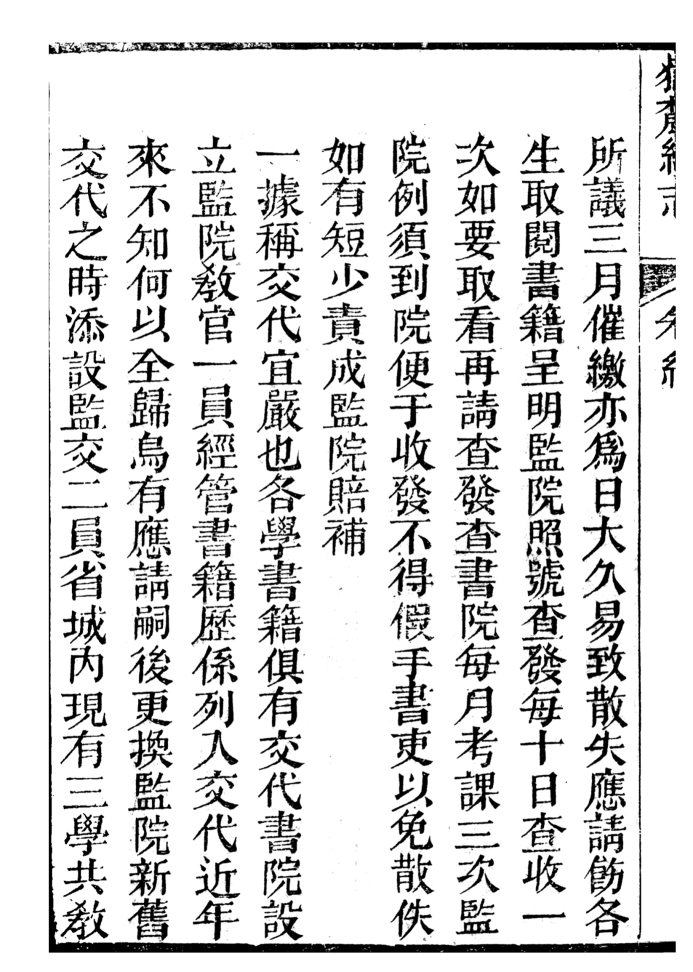 所議三月催繳亦爲日大久易致散失應請飭各
生取閱書籍呈明監院照號查發每十日查收一
次如要取看再請查發查書院每月考課三次監
院例須到院便于收發不得假手書吏以免散佚
如有短少責成監院賠補
一據稱交代宜嚴也各學書籍俱有交代書院設
立監院教官一員經管書籍歷係列入交代近年
來不知何以全歸烏有應請嗣後更換監院新舊
交代之時添設監交二員省城內現有三學共教